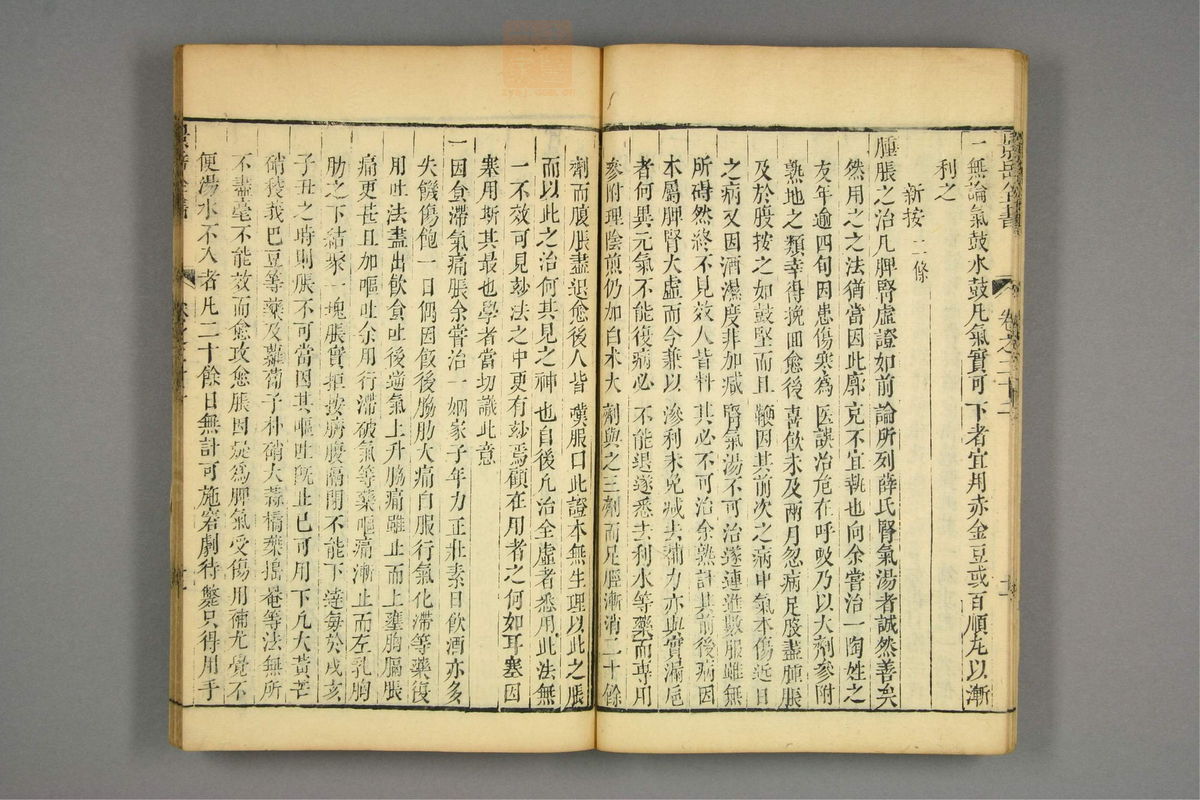 一無論氣鼓水鼓凡氣實可下者宜用赤金豆或百順丸以漸
利之
新按 二條
腫脹之治凡脾腎虛證如前論所列薛氏腎氣湯者誠然善矣
然用之之法猶當因此廓克不宜執也向余嘗治一陶姓之
友年逾四旬因患傷寒為医誤治危在呼吸乃以大劑參附
熟地之類幸得挽回愈後喜飲未及兩月忽病足股盡腫脹
及於腹按之如鼓堅而且鞭因其前次之病中氣本傷近日
之病又因酒濕度非加减腎氣湯不可治遂連進數服雖無
所碍然終不見效人皆料其必不可治余熟計其前後病因
本屬脾腎大虛而今兼以滲利未免减去補力亦與實漏巵
者何異元氣不能復病必不能退遂悉去利水等藥而専用
參附理陰煎仍加白术大劑與之三劑而足脛漸消二十餘
卷之二十二
劑而腹脹盡退愈後人皆嘆服曰此證本無生理以此之脹
而以此之治何其見之神也自後凡治全虛者悉用此法無
一不效可見玅法之中更有玅焉顧在用者之何如耳塞因
塞用斯其最也學者當切識此意
一因食滯氣痛脹余嘗治一姻家子年力正壯素日飲酒亦多
失饑傷飽一日偶因飯後脇肋大痛自服行氣化滯等藥復
用吐法盡出飲食吐後逆氣上升脇痛雖止而上壅胸膈脹
痛更甚且加嘔吐余用行滯破氣等藥嘔痛漸止而左乳胸
肋之下結聚一塊脹實拒按臍腹隔閉不能下達每於戌亥
子丑之時則脹不可當因其嘔吐既止已可用下凡大黃芒
硝稜莪巴豆等藥及蘿蔔子朴硝大蒜橘葉搗罨等法無所
不盡毫不能效而愈攻愈脹因疑為脾氣受傷用補尤覺不
便湯水不入者凡二十餘日無計可施窘劇待斃只得用手